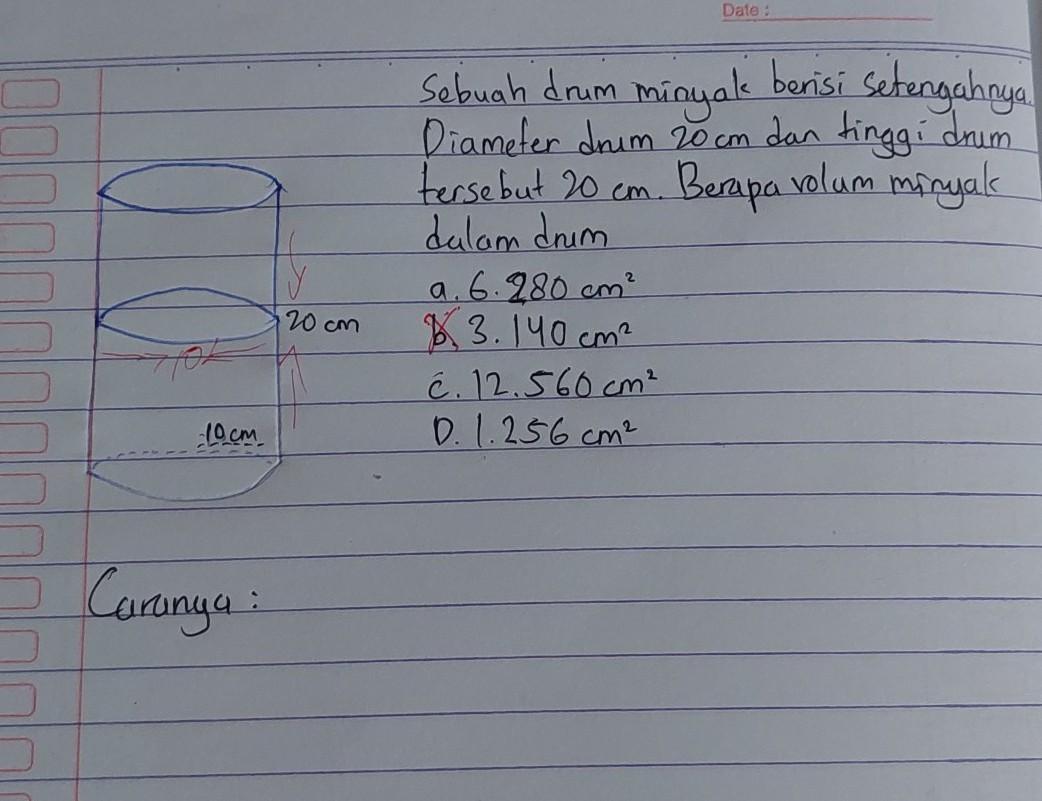 Date :
Sebuah drum minyak berisi setengahnya.
Diameter drum 20 cm dan tinggi drum
tersebut 20 cm. Berapa volum minyak
dalam drum
a. 6.280 cm²
b. 3.140 cm²
c. 12.560 cm²
D. 1.256 cm²
20 cm
10
10 cm
Caranya :